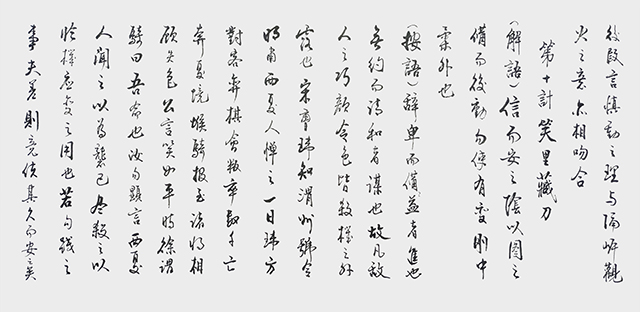 後段言慎動之理与隔岸觀
火之意亦相吻合
第十計 笑里藏刀
(解語)信而安之陰以图之
備而後動勿使有變刚中
柔外也
(按語)辞卑而備益者進也
無約而请和者謀也故凡敵
人之巧颜令色皆殺機之外
露也宋曹瑋知渭州號令
明肅西夏人憚之一日瑋方
對客弈棋會叛卒數千亡
奔夏境堠騎报至諸將相
顾失色公言笑如平時徐謂
騎曰吾命也汝勿顯言西夏
人聞之以為襲己盡殺之以
臨機應变之用也若勾踐之
事夫差則竟使其久而安之矣